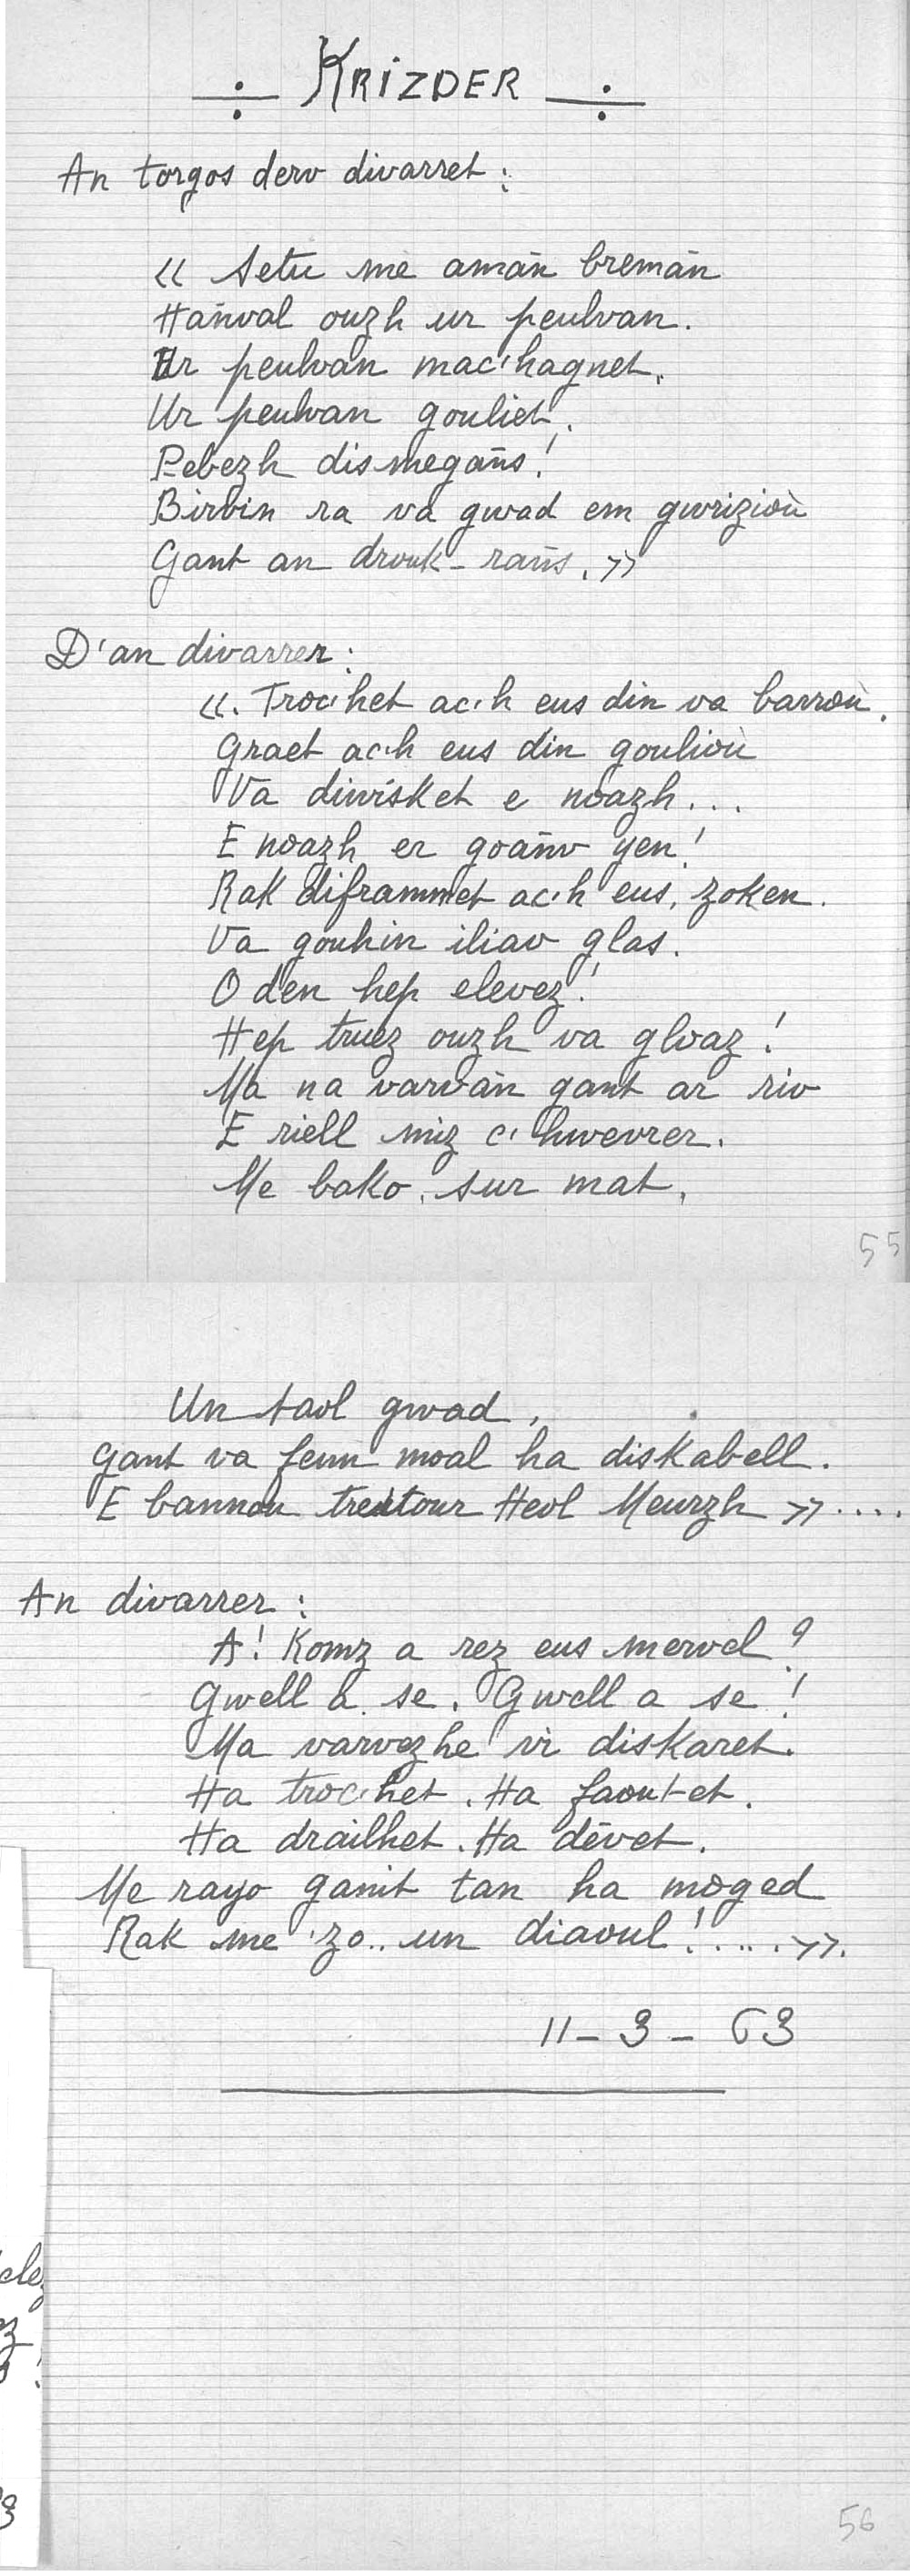 ÷ KRIZDER ÷
An torgos derv divarret :
« Setu me amañ bremañ
Hañval ouzh ur peulvan.
Ur peulvan mac'hagnet.
Ur peulvan gouliet.
Pebezh dismegañs !
Birvin ra va gwad em gwrizioù
Gant an drouk-rañs. »
D'an divarrer :
«. Troc'het ac'h eus din va barroù.
Graet ac'h eus din goulioù
Va diwisket e noazh...
E noazh er goañv yen !
Rak diframmet ac'h eus, zoken.
Va gouhin iliav glas.
O den hep elevez !
Hep truez ouzh va gloaz !
Ma na varvan gant ar riv
E riell miz c'hwevrer.
Me bako, sur mat,
55
Un taol gwad,
Gant va fenn moal ha diskabell.
E bannou treitour Heol Meurzh » ....
An divarrer :
A ! Komz a rez eus mervel ?
Gwell a se. Gwell a se !
Ma varvezhe vi diskaret.
Ha troc'het. Ha faoutet.
Ha drailhet. Ha devet.
Me rayo ganit tan ha moged
Rak me 'zo.. un diaoul !..... ».
11 - 3 - 63
56